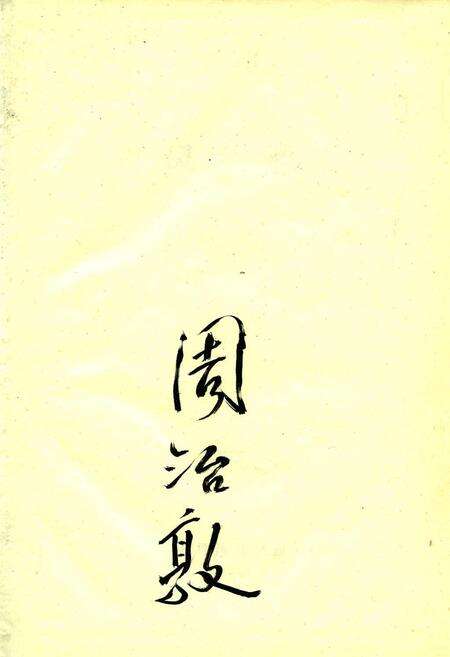 周治敦